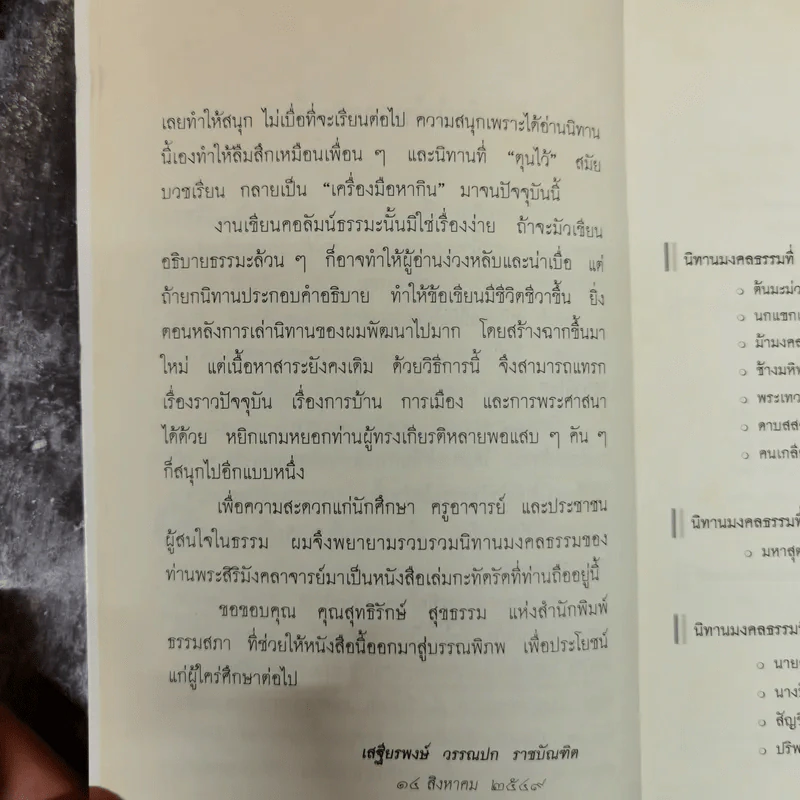 เลยทำให้สนุก ไม่เบื่อที่จะเรียนต่อไป ความสนุกเพราะได้อ่านนิทาน
นี้เองทำให้ลืมสึกเหมือนเพื่อน ๆ และนิทานที่ “ตุนไว้” สมัย
บวชเรียน กลายเป็น “เครื่องมือหากิน” มาจนปัจจุบันนี้
งานเขียนคอลัมน์ธรรมะนั้นมิใช่เรื่องง่าย ถ้าจะมัวเขียน
อธิบายธรรมะล้วน ๆ ก็อาจทำให้ผู้อ่านง่วงหลับและน่าเบื่อ แต่
ถ้ายกนิทานประกอบคำอธิบาย ทำให้ข้อเขียนมีชีวิตชีวาขึ้น ยิ่ง
ตอนหลังการเล่านิทานของผมพัฒนาไปมาก โดยสร้างฉากขึ้นมา
ใหม่ แต่เนื้อหาสาระยังคงเดิม ด้วยวิธีการนี้ จึงสามารถแทรก
เรื่องราวปัจจุบัน เรื่องการบ้าน การเมือง และการพระศาสนา
ได้ด้วย หยิกแกมหยอกท่านผู้ทรงเกียรติหลายพอแสบ ๆ คัน ๆ
ก็สนุกไปอีกแบบหนึ่ง
เพื่อความสะดวกแก่นักศึกษา ครูอาจารย์ และประชาชน
ผู้สนใจในธรรม ผมจึงพยายามรวบรวมนิทานมงคลธรรมของ
ท่านพระสิริมังคลาจารย์มาเป็นหนังสือเล่มกะทัดรัดที่ท่านถืออยู่นี้
ขอขอบคุณ คุณสุทธิรักษ์ สุขธรรม แห่งสำนักพิมพ์
ธรรมสภา ที่ช่วยให้หนังสือนี้ออกมาสู่บรรณพิภพ เพื่อประโยชน์
แก่ผู้ใคร่ศึกษาต่อไป
เสฐียรพงษ์ วรรณปก ราชบัณฑิต
๑๔ สิงหาคม ๒๕๔๙
นิทานมงคลธรรมที่
ต้นมะม่ว
นกแขกเ
ม้ามงคล
ช้างมหิ
พระเทว
ดาบสส
คนเกลี
นิทานมงคลธรรมที่
มหาสุต
นิทานมงคลธรรมที่
นาย
นาง
สัญ
ปริพ